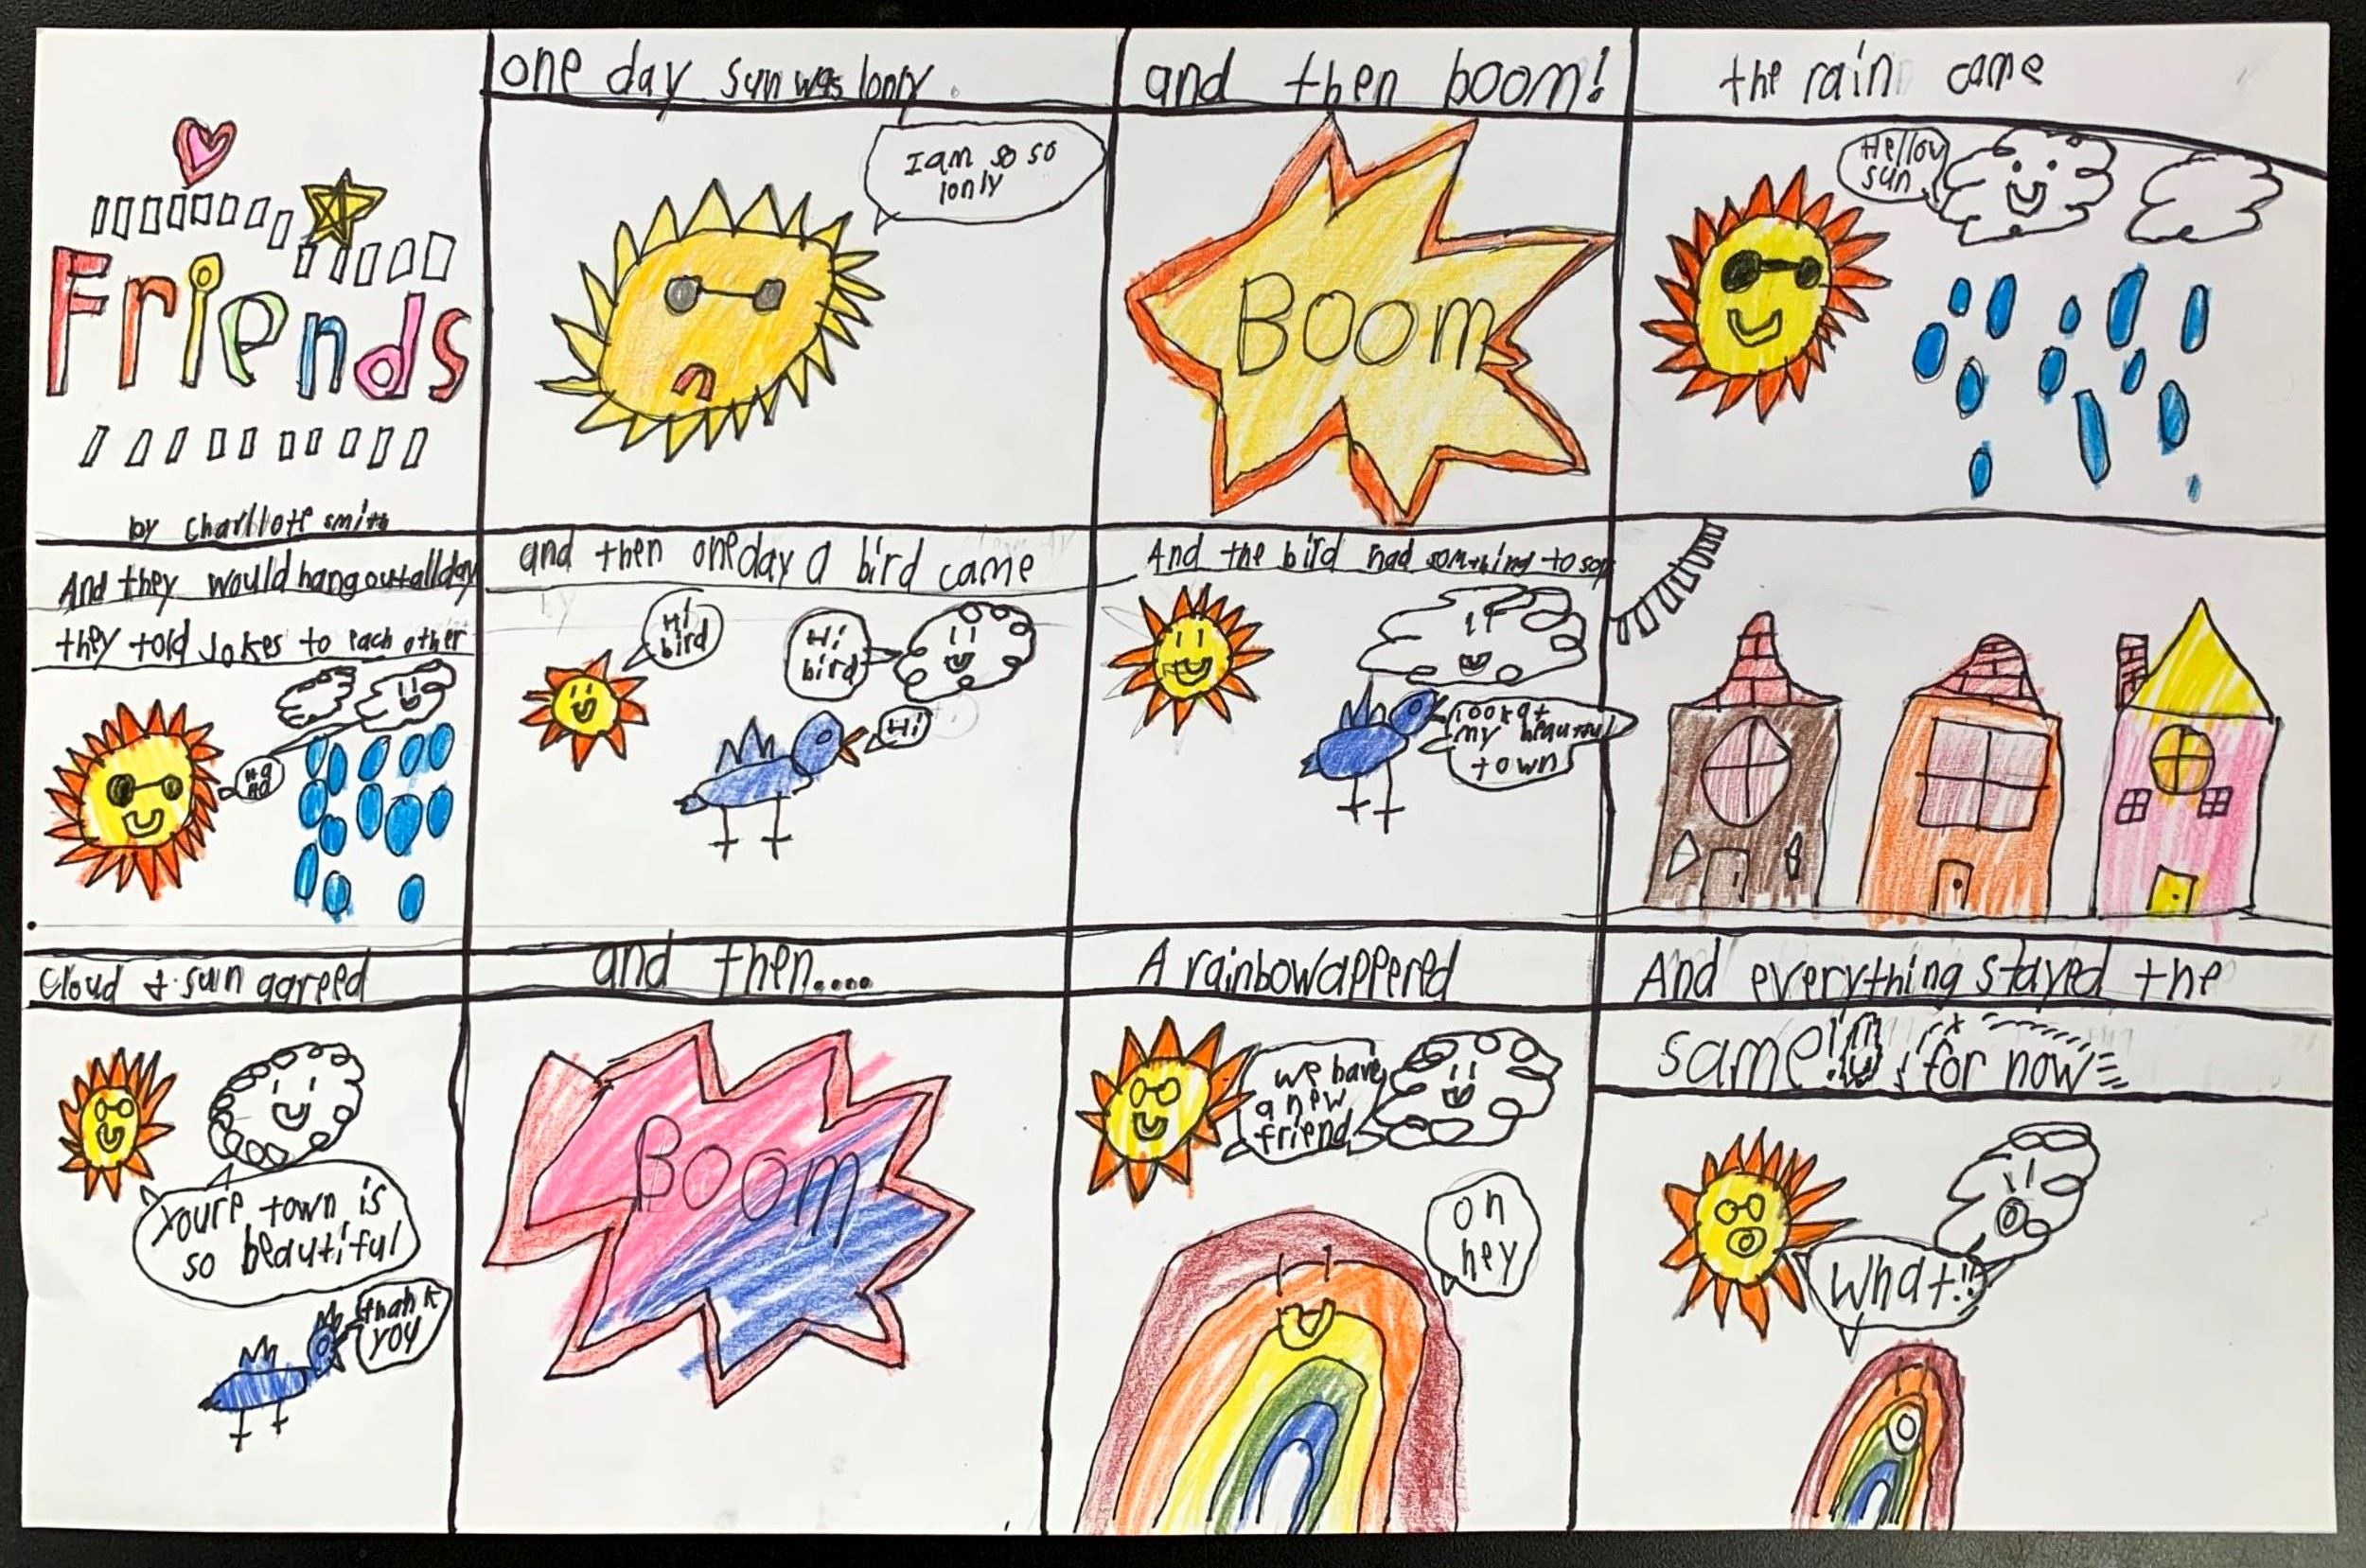 Friends
by Charllote smith
one day sun was lonly.
I am so so
lonly
and then boom!
BOOM
the rain came
Hellow
sun
And they would hang out all day
they told Jokes to each other
Ha
Ha
and then one day a bird came
Hi
bird
Hi
bird
Hi
And the bird had something to say
look at
my beautiful
town
cloud & sun agreed
youre town is
so beautiful
thank
you
and then....
BOOM
A rainbow appered
we have
a new
friend
oh
hey
And everything stayed the
same! for now
what!!